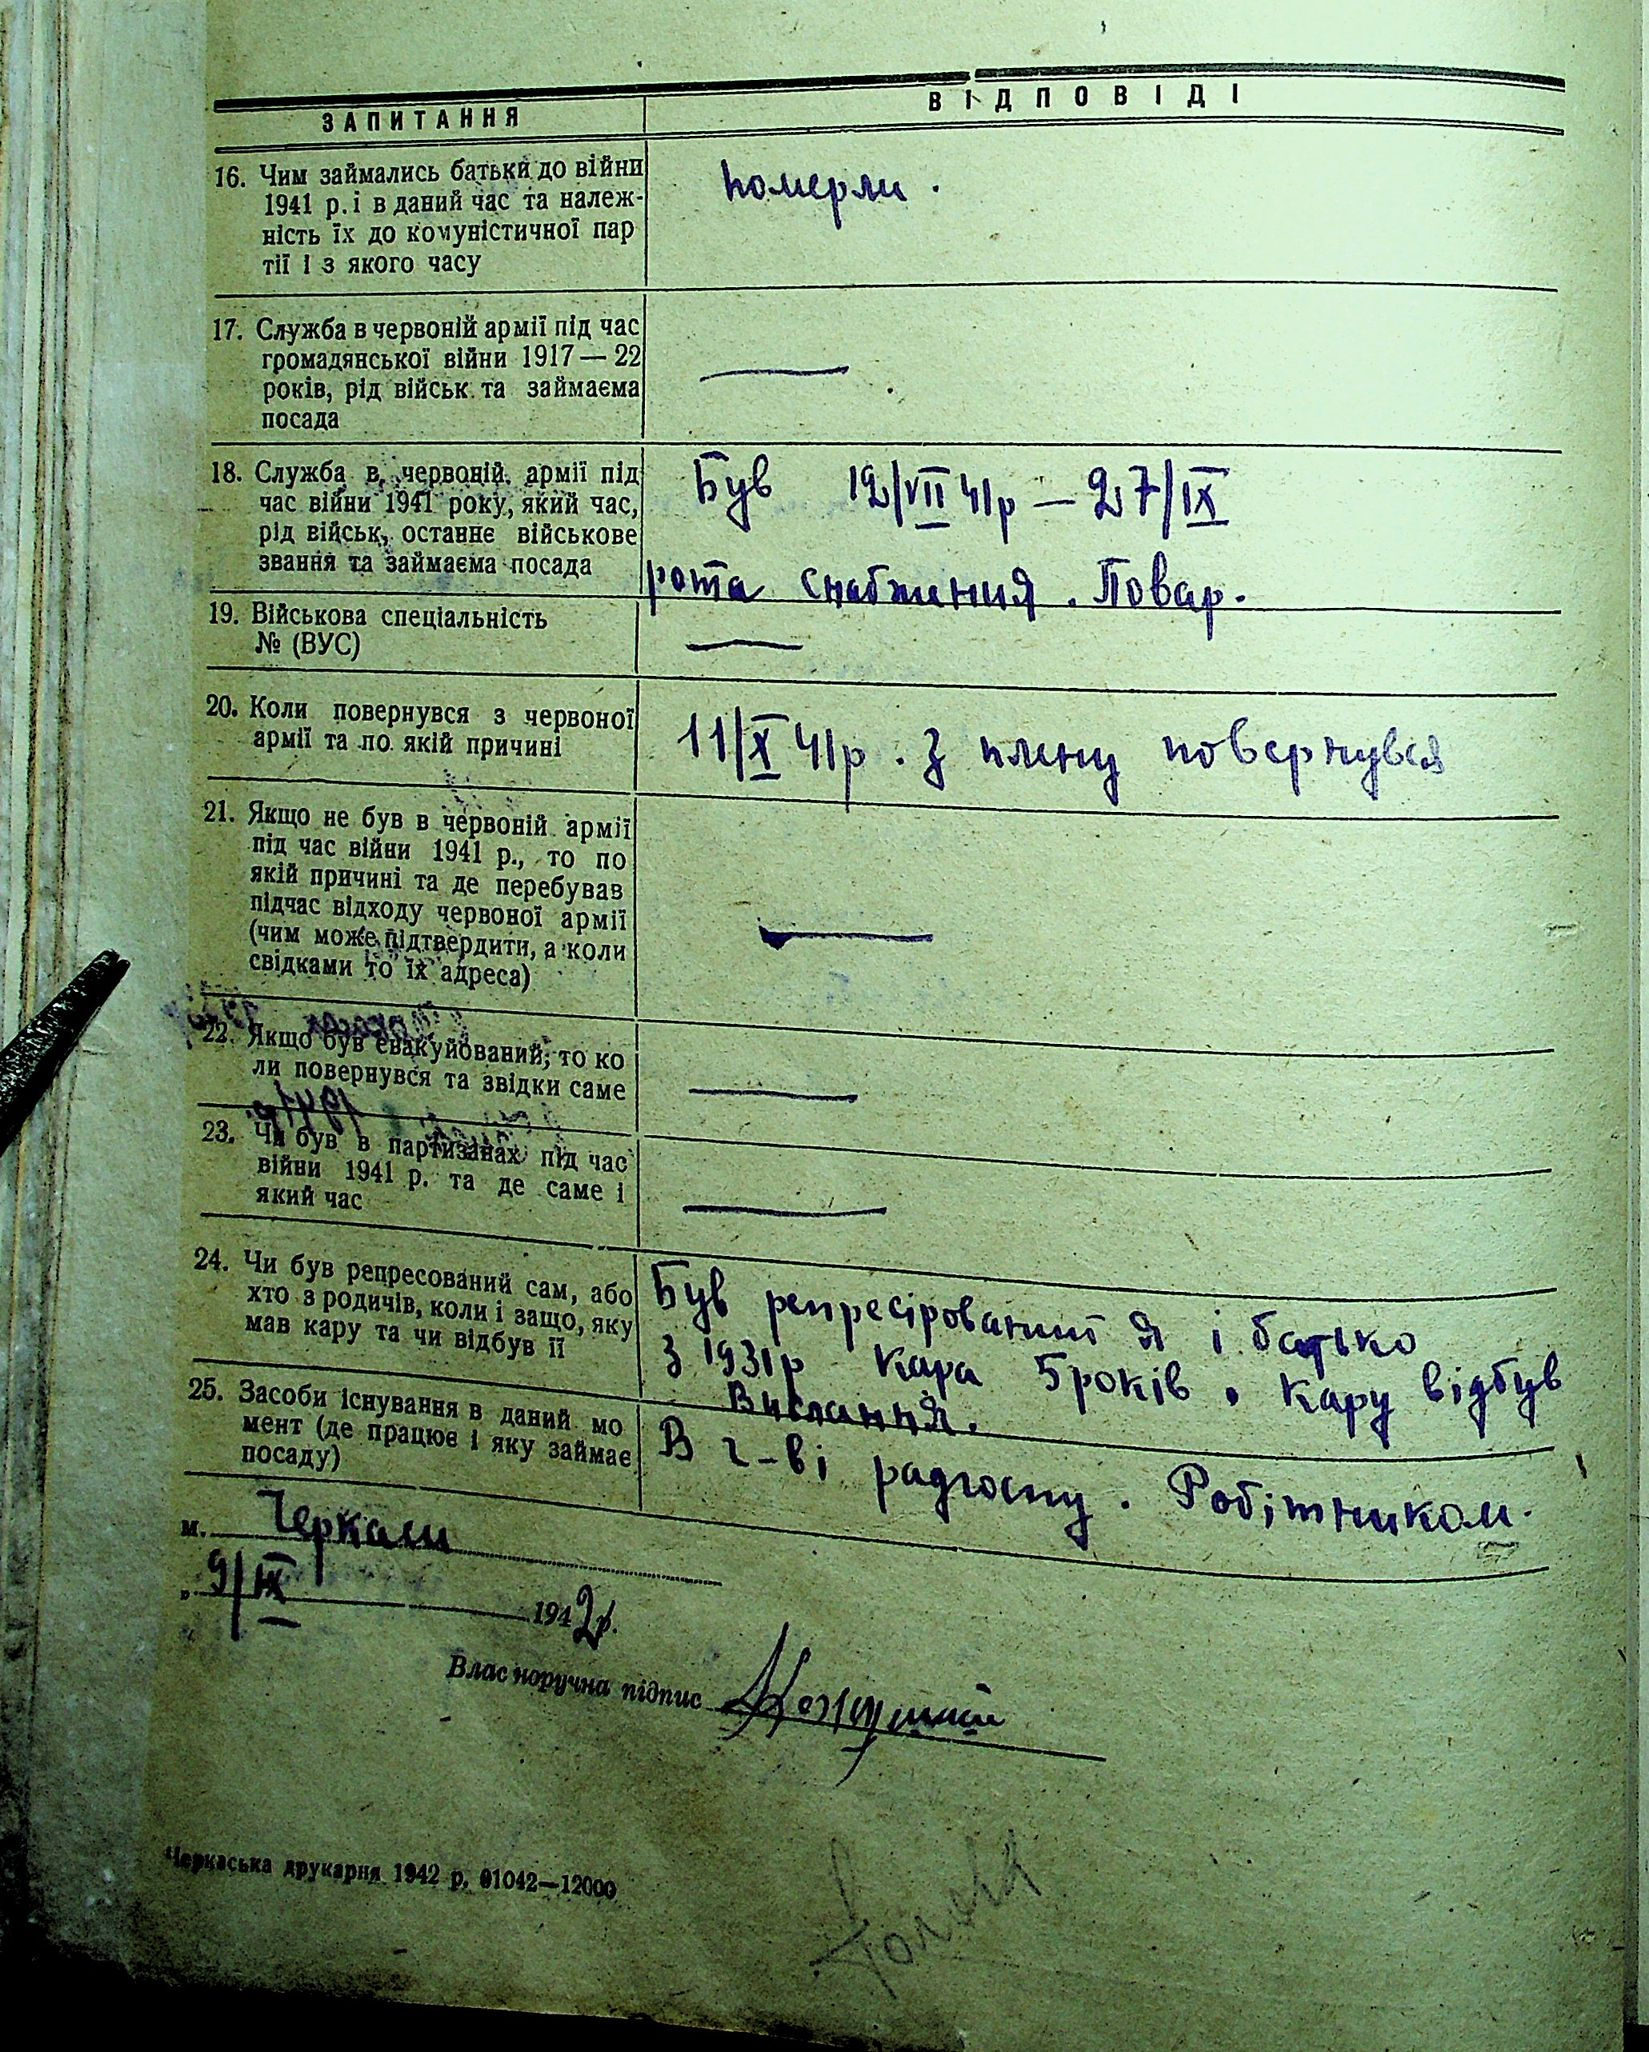 ЗАПИТАННЯ
ВІДПОВІДІ
16. Чим займались батьки до війни
1941 р. і в даний час та належ-
ність їх до комуністичної пар
тії і з якого часу
Померли.
17. Служба в червоній армії під час
громадянської війни 1917—22
років, рід військ та займаєма
посада
—
18. Служба в червоній армії під
час війни 1941 року, який час,
рід військ, останнє військове
звання та займаєма посада
Був 12/VII 41р — 27/IX
рота снабжения. Повар.
19. Військова спеціальність
№ (ВУС)
—
20. Коли повернувся з червоної
армії та по якій причині
11/X 41р. З плену повернувся
21. Якщо не був в червоній армії
під час війни 1941 р., то по
якій причині та де перебував
підчас відходу червоної армії
(чим може підтвердити, а коли
свідками то їх адреса)
—
22. Якщо був евакуйований, то ко
ли повернувся та звідки саме
—
23. Чи був в партизанах під час
війни 1941 р. та де саме і
який час
—
24. Чи був репресований сам, або
хто з родичів, коли і защо, яку
мав кару та чи відбув її
Був репресірований я і батько
з 1931р Кара 5років. Кару відбув
Вислання.
25. Засоби існування в даний мо
мент (де працює і яку займає
посаду)
В г-ві радгоспу. Робітником.
м. Черкаси
„ 9/IX 1942р.
Власноручна підпис
Черкаська друкарня 1942 р. 01042—12000